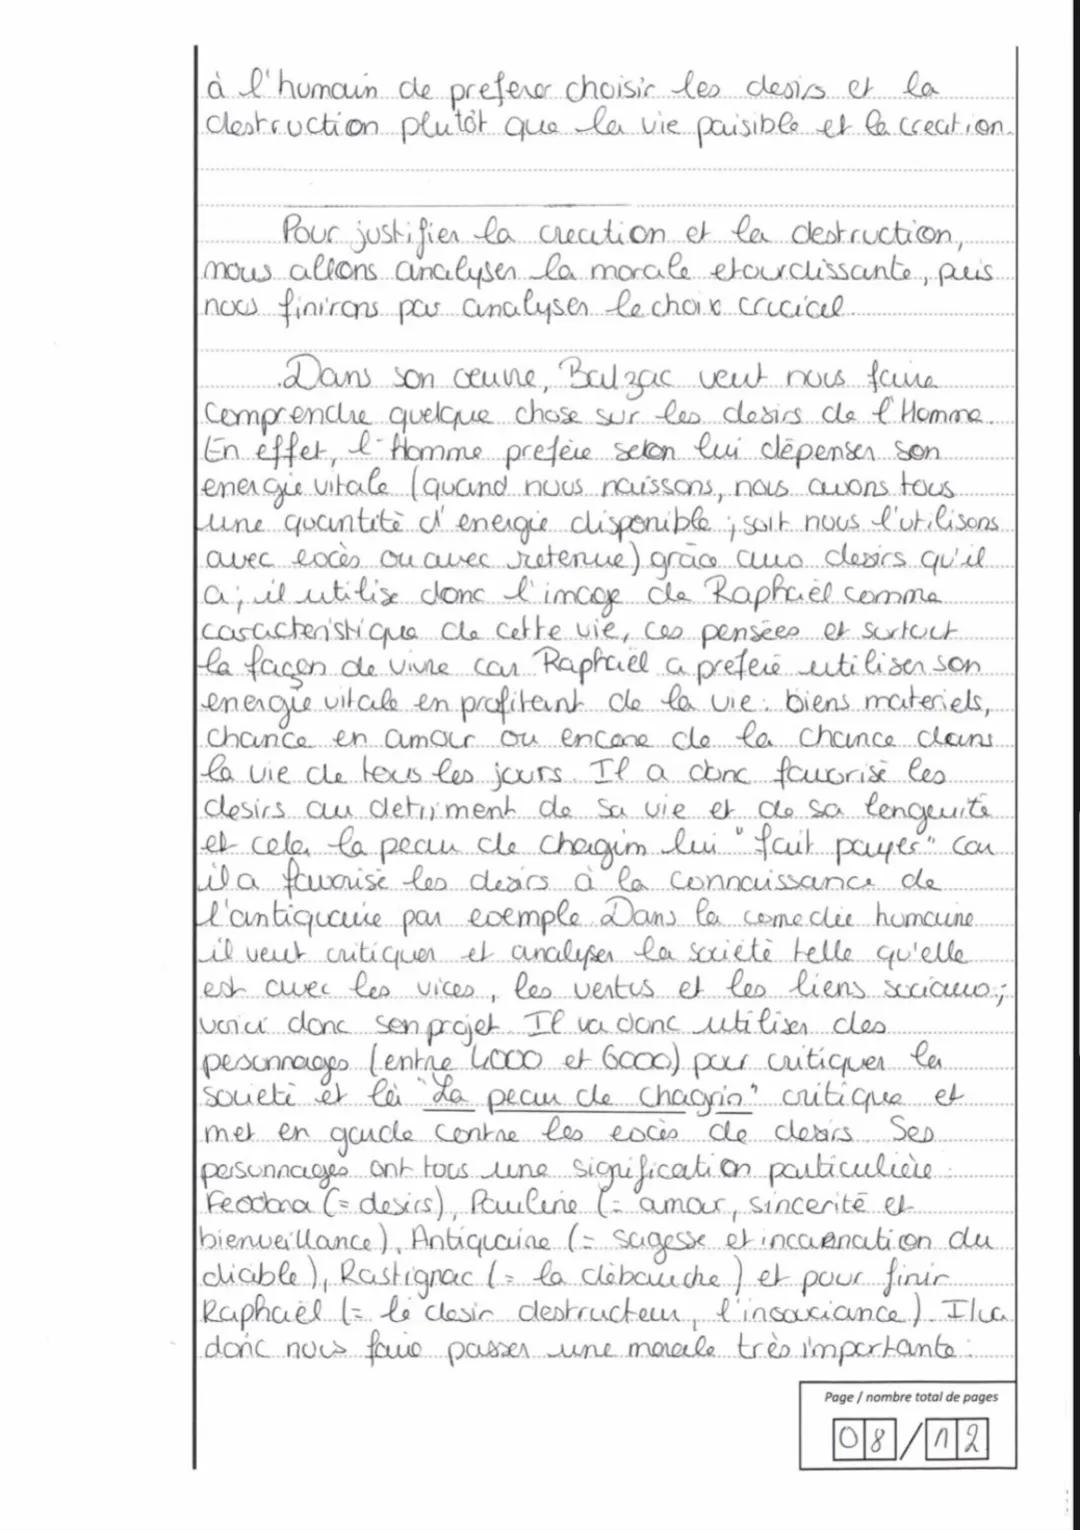 à l'humain de preferer choisir les desirs et la
destruction plutôt que la vie paisible et la creation.
Pour justifier la creation et la destruction,
nous allons analyser la morale etourdissante, puis
nous finirons par analyser le choix crucial.
Dans son œuvre, Balzac veut nous faire
comprendre quelque chose sur les desirs de l'Homme.
En effet, l'Homme prefère selon lui dépenser son
energie vitale (quand nous naissons, nous avons tous
une quantité d'energie disponible ; soit nous l'utilisons
avec excès ou avec retenue) grâce aux desirs qu'il
a ; il utilise donc l'image de Raphaël comme
caracteristique de cette vie, ces pensées et surtout
la façon de vivre car Raphaël a preferé utiliser son
energie vitale en profitant de la vie : biens materiels,
chance en amour ou encore de la chance dans
la vie de tous les jours. Il a donc favorisé les
desirs au detriment de sa vie et de sa longevité
et cela la peau de chagrin lui "fait payer" car
il a favorisé les desirs à la connaissance de
l'antiquaire par exemple. Dans la comedie humaine
il veut critiquer et analyser la société telle qu'elle
est avec les vices, les vertus et les liens sociaux ;
voici donc son projet. Il va donc utiliser des
pesonnages (entre 4000 et 6000) pour critiquer la
societé et là "La peau de chagrin" critique et
met en garde contre les excès de desirs. Ses
personnages ont tous une signification particulière :
Feodora (= desirs), Pauline (= amour, sincerité et
bienveillance), Antiquaire (= sagesse et incarnation du
diable), Rastignac (= la débauche) et pour finir
Raphaël (= le desir destructeur, l'insouciance). Il va
donc nous faire passer une morale très importante :
Page / nombre total de pages
08/12